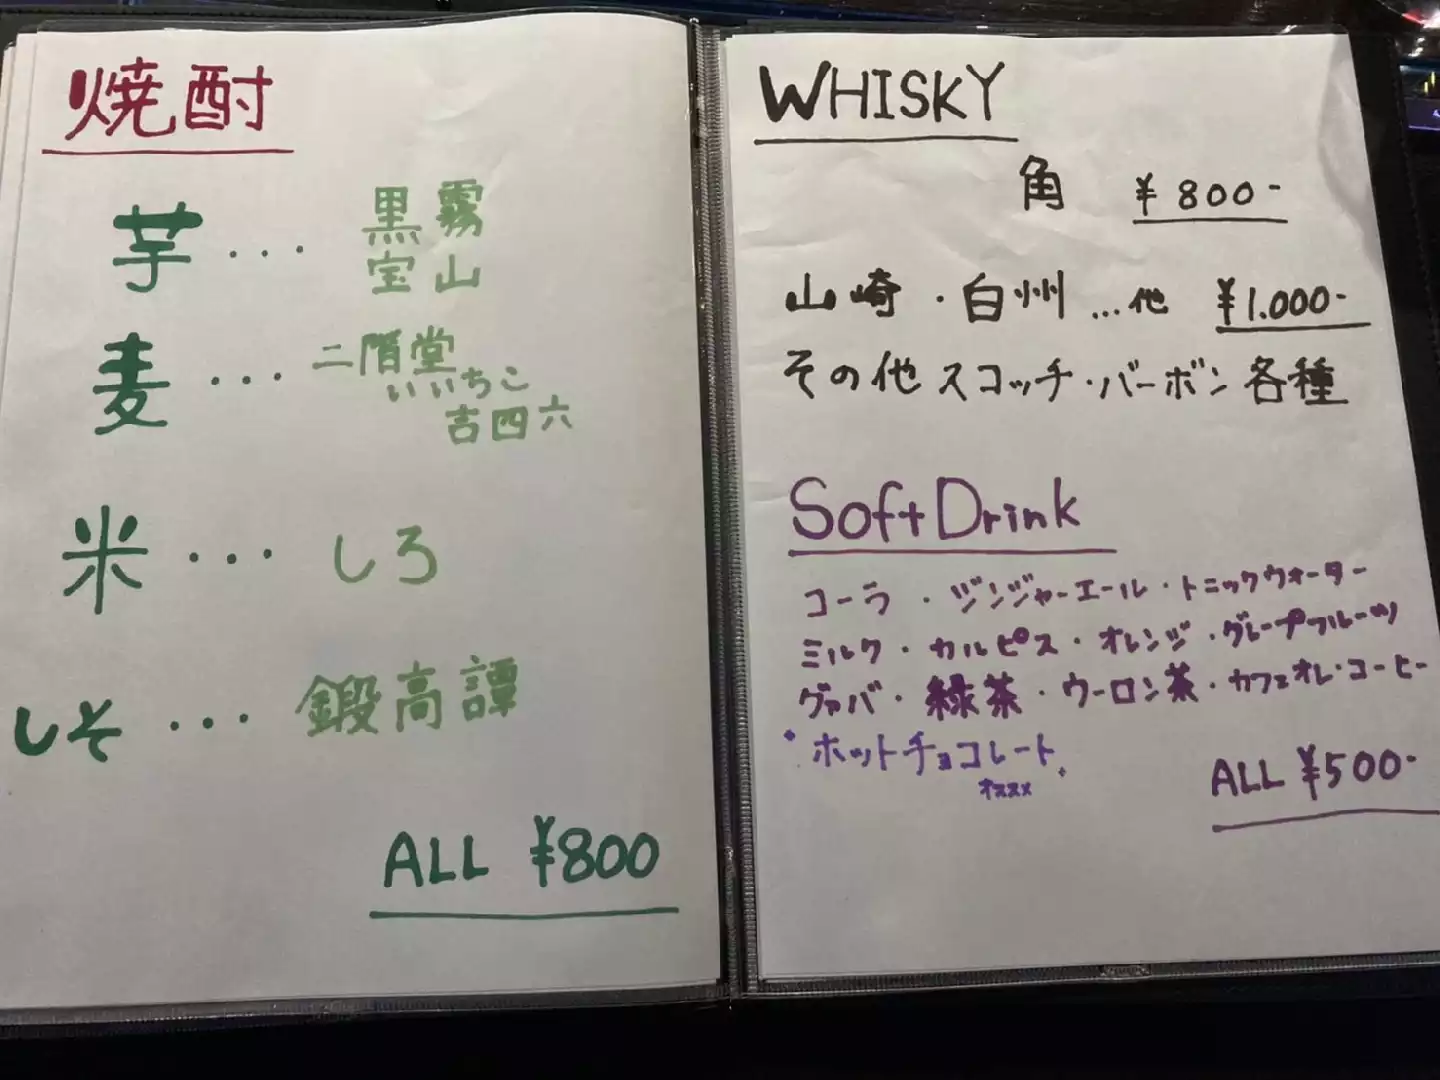 焼酎
芋・・・黒霧
宝山
麦・・・二階堂
いいちこ
吉四六
米・・・しろ
しそ・・・鍛高譚
ALL ¥800
WHISKY
角 ¥800-
山崎・白州...他 ¥1.000-
その他スコッチ・バーボン各種
Soft Drink
コーラ・ジンジャーエール・トニックウォーター
ミルク・カルピス・オレンジ・グレープフルーツ
グァバ・緑茶・ウーロン茶・カフェオレ・コーヒー
ホットチョコレート
オススメ
ALL ¥500-